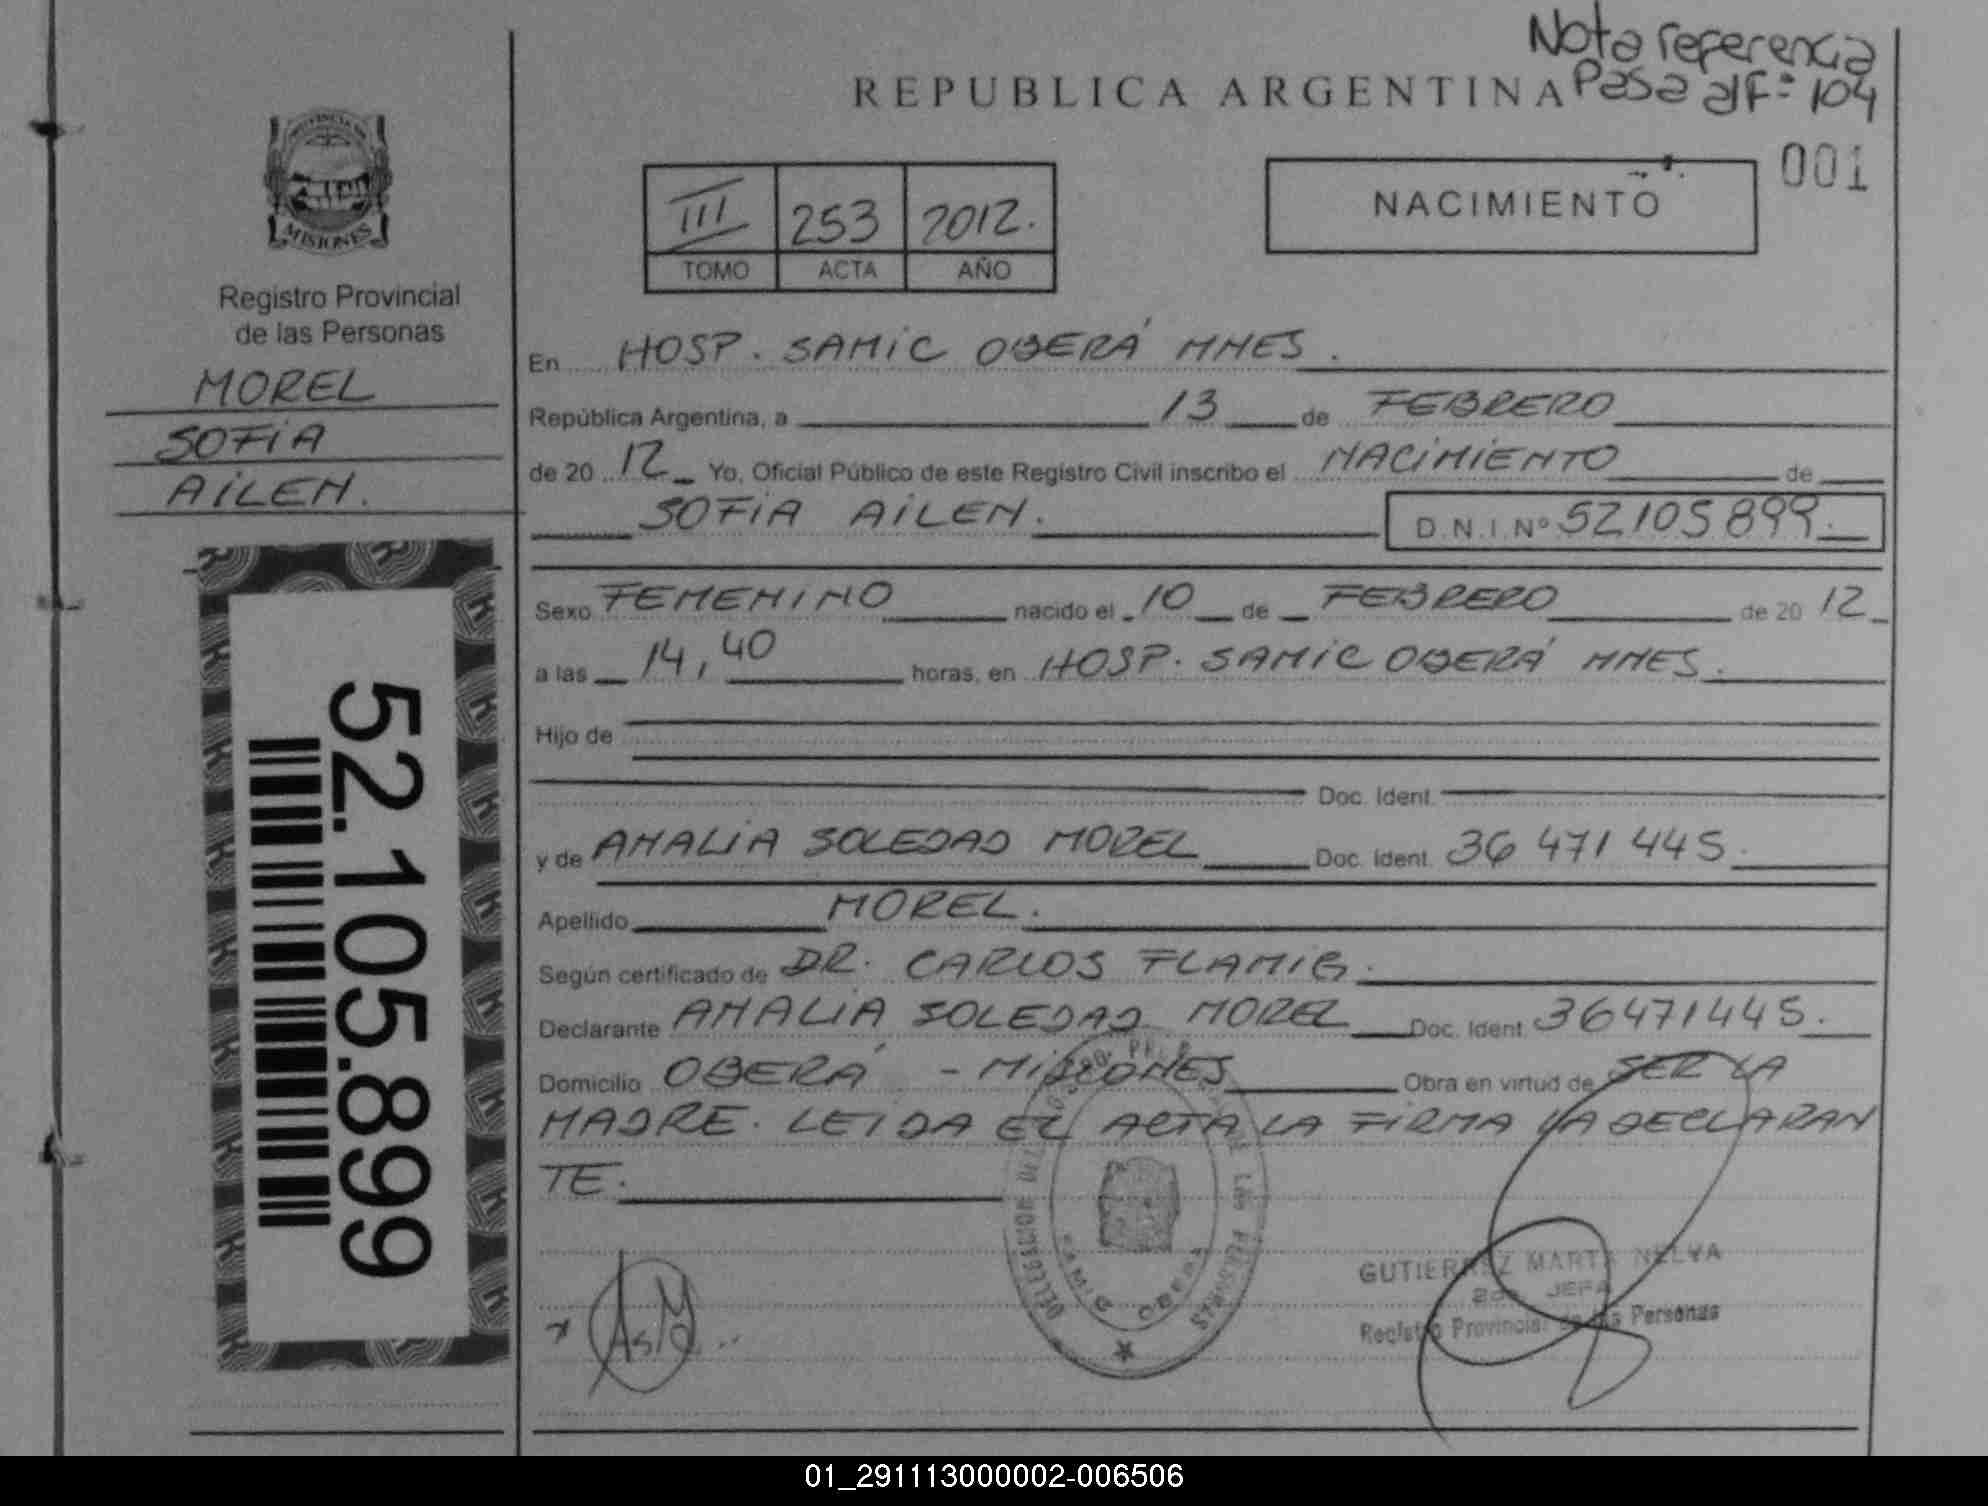 Nota referencia
Pasa al Fº 104
REPUBLICA ARGENTINA
001
PROVINCIA DE
MISIONES
Registro Provincial
de las Personas
MOREL
SOFIA
AILEN.
52.105.899
III 253 2012.
TOMO ACTA AÑO
NACIMIENTO
En HOSP. SAMIC OBERÁ MNES.
República Argentina, a 13 de FEBRERO
de 20 12 Yo, Oficial Público de este Registro Civil inscribo el NACIMIENTO de
SOFIA AILEN. D.N.I. Nº 52105899.
Sexo FEMENINO nacido el 10 de FEBRERO de 20 12
a las 14,40 horas, en HOSP. SAMIC OBERÁ MNES.
Hijo de
Doc. Ident.
y de AMALIA SOLEDAD MOREL Doc. Ident. 36 471 445.
Apellido MOREL.
Según certificado de DR. CARLOS FLAMIG.
Declarante AMALIA SOLEDAD MOREL Doc. Ident. 36471445.
Domicilio OBERÁ - MISIONES Obra en virtud de SER LA
MADRE. LEIDA EL ACTA LA FIRMA LA DECLARAN
TE.
DELEGACION
DE LAS PERSONAS
SAMIC OBERA
GUTIERREZ MARTA NELVA
JEFA
Registro Provincial de las Personas
01_291113000002-006506